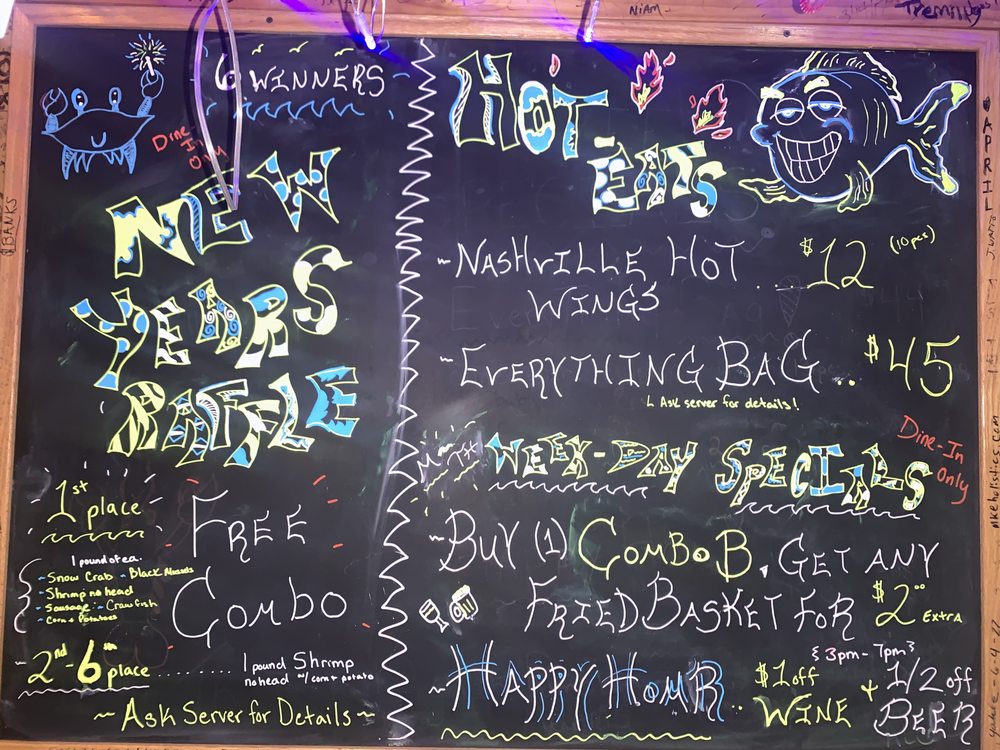 6 WINNERS
Dine-In Only
NEW
YEARS
RAFFLE
1st place
FREE
COMBO
1 pound of ea.
~ Snow Crab ~ Black Mussels
~ Shrimp no head
~ Sausage ~ Crawfish
~ Corn & Potatoes
~2nd-6th place ......... 1 pound Shrimp
no head w/ corn & potato
~ Ask Server for Details ~
HOT
EATS
~NASHVILLE HOT ... $12 (10pcs)
WINGS
~EVERYTHING BAG .. $45
Ask server for details!
WEEK-DAY SPECIALS Dine-In Only
~BUY (1) COMBO B, GET ANY
FRIED BASKET FOR $2.00 EXTRA
{3pm-7pm}
~HAPPY HOUR .. $1 off WINE + 1/2 off BEER
NiAM
Tremilly
BANKS
APRIL